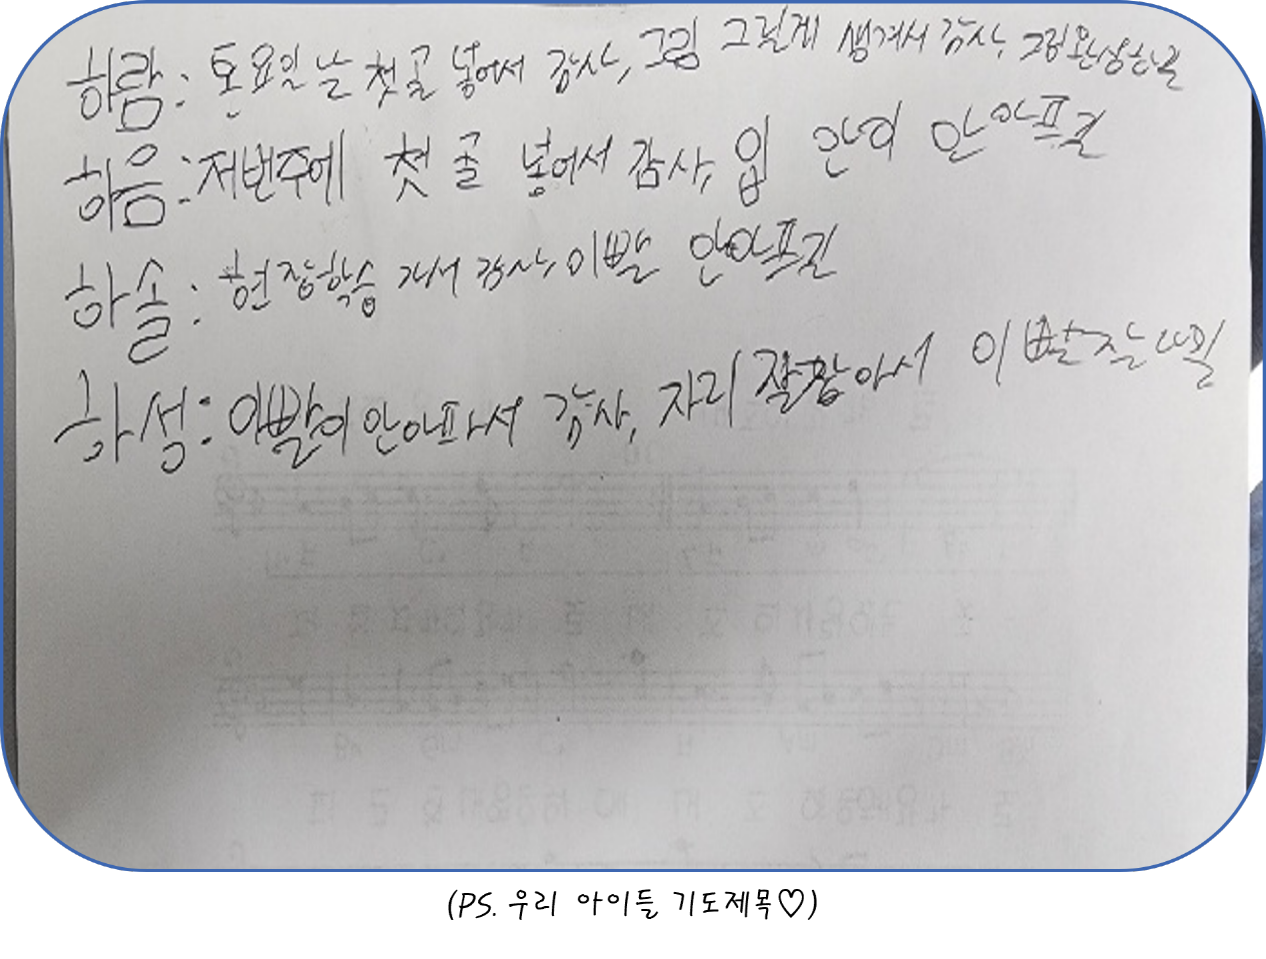 하람: 토요일날 첫골 넣어서 감사, 그림 그릴게 생겨서 감사, 그림 완성하길
하음: 저번주에 첫 골 넣어서 감사, 입 안이 안 아프길
하솔: 현장학습 가서 감사, 이빨 안아프길
하성: 이빨이 안아파서 감사, 자리 잘잡아서 이빨잘나길
(PS. 우리 아이들 기도제목♡)